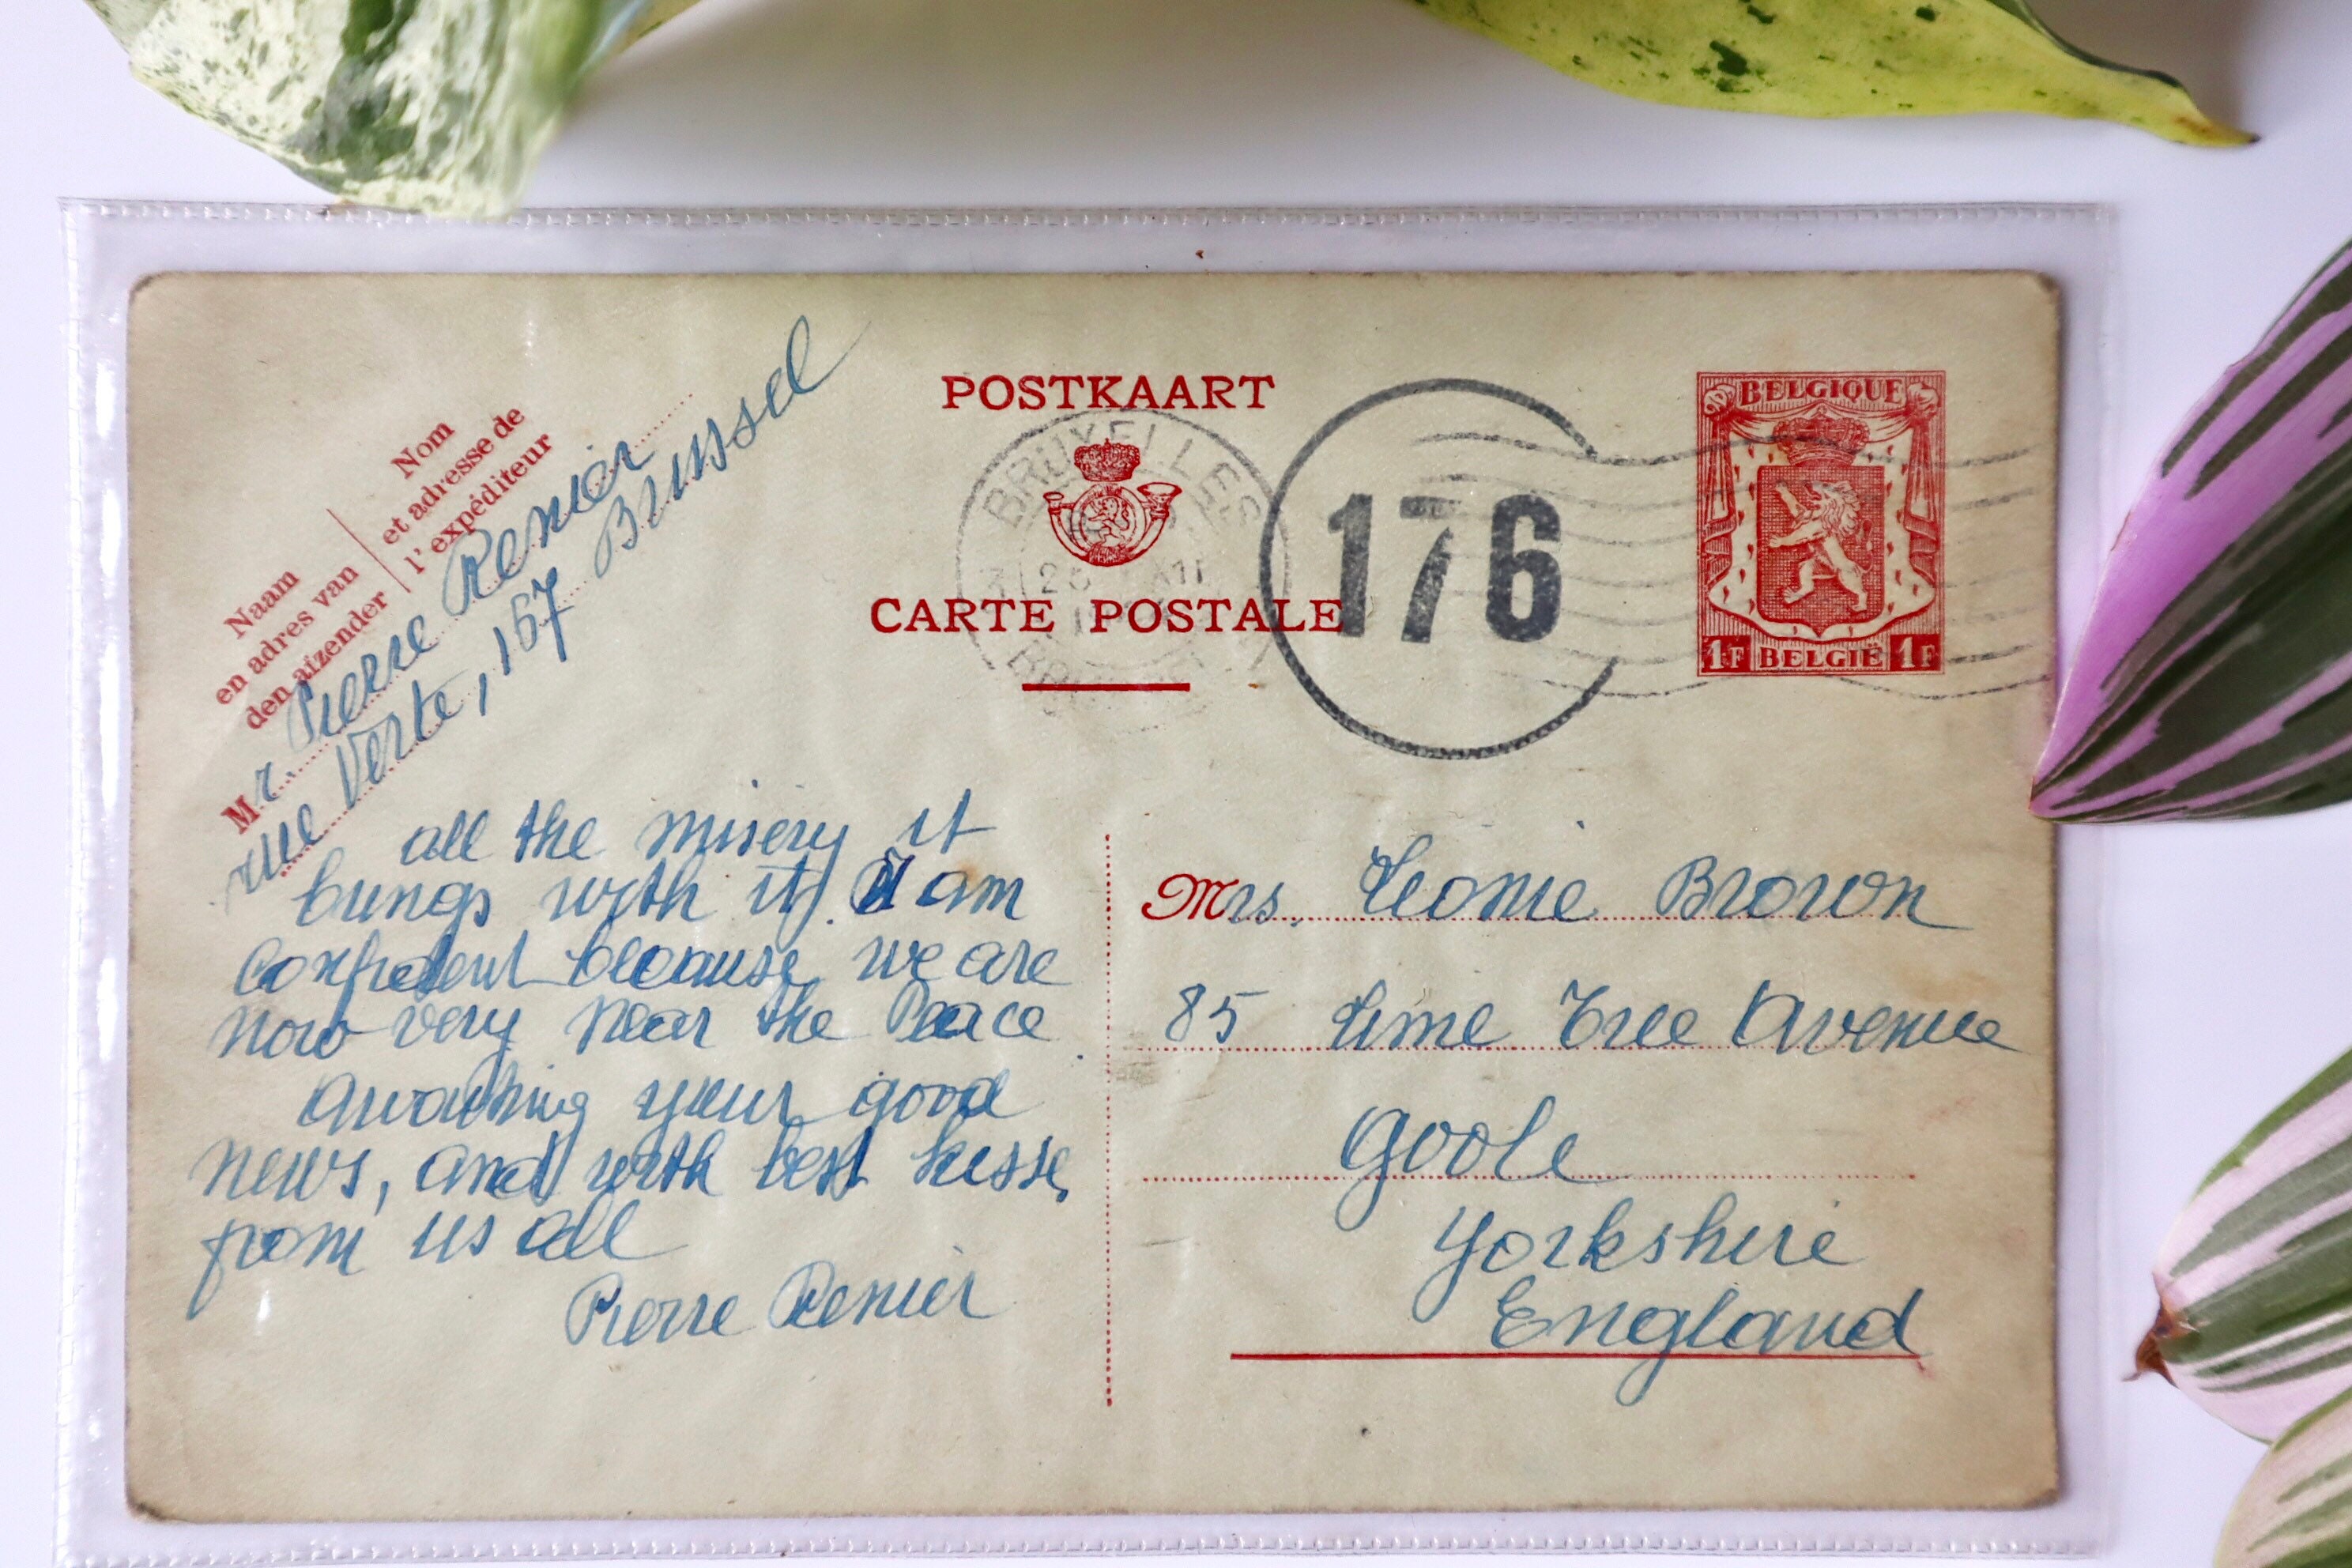 POSTKAART
CARTE POSTALE
BRUXELLES
176
BELGIQUE
1F BELGIË 1F
Naam
en adres van
den afzender
Nom
et adresse de
l'expéditeur
Mr. Pierre Renier
rue Verte, 167 Brussel
all the misery it
brings with it). I am
confident because we are
now very near the Peace.
Awaiting your good
news, and with best kisses
from us all
Pierre Renier
Mrs. Leonie Brown
85 Lime Tree Avenue
Goole
Yorkshire
England